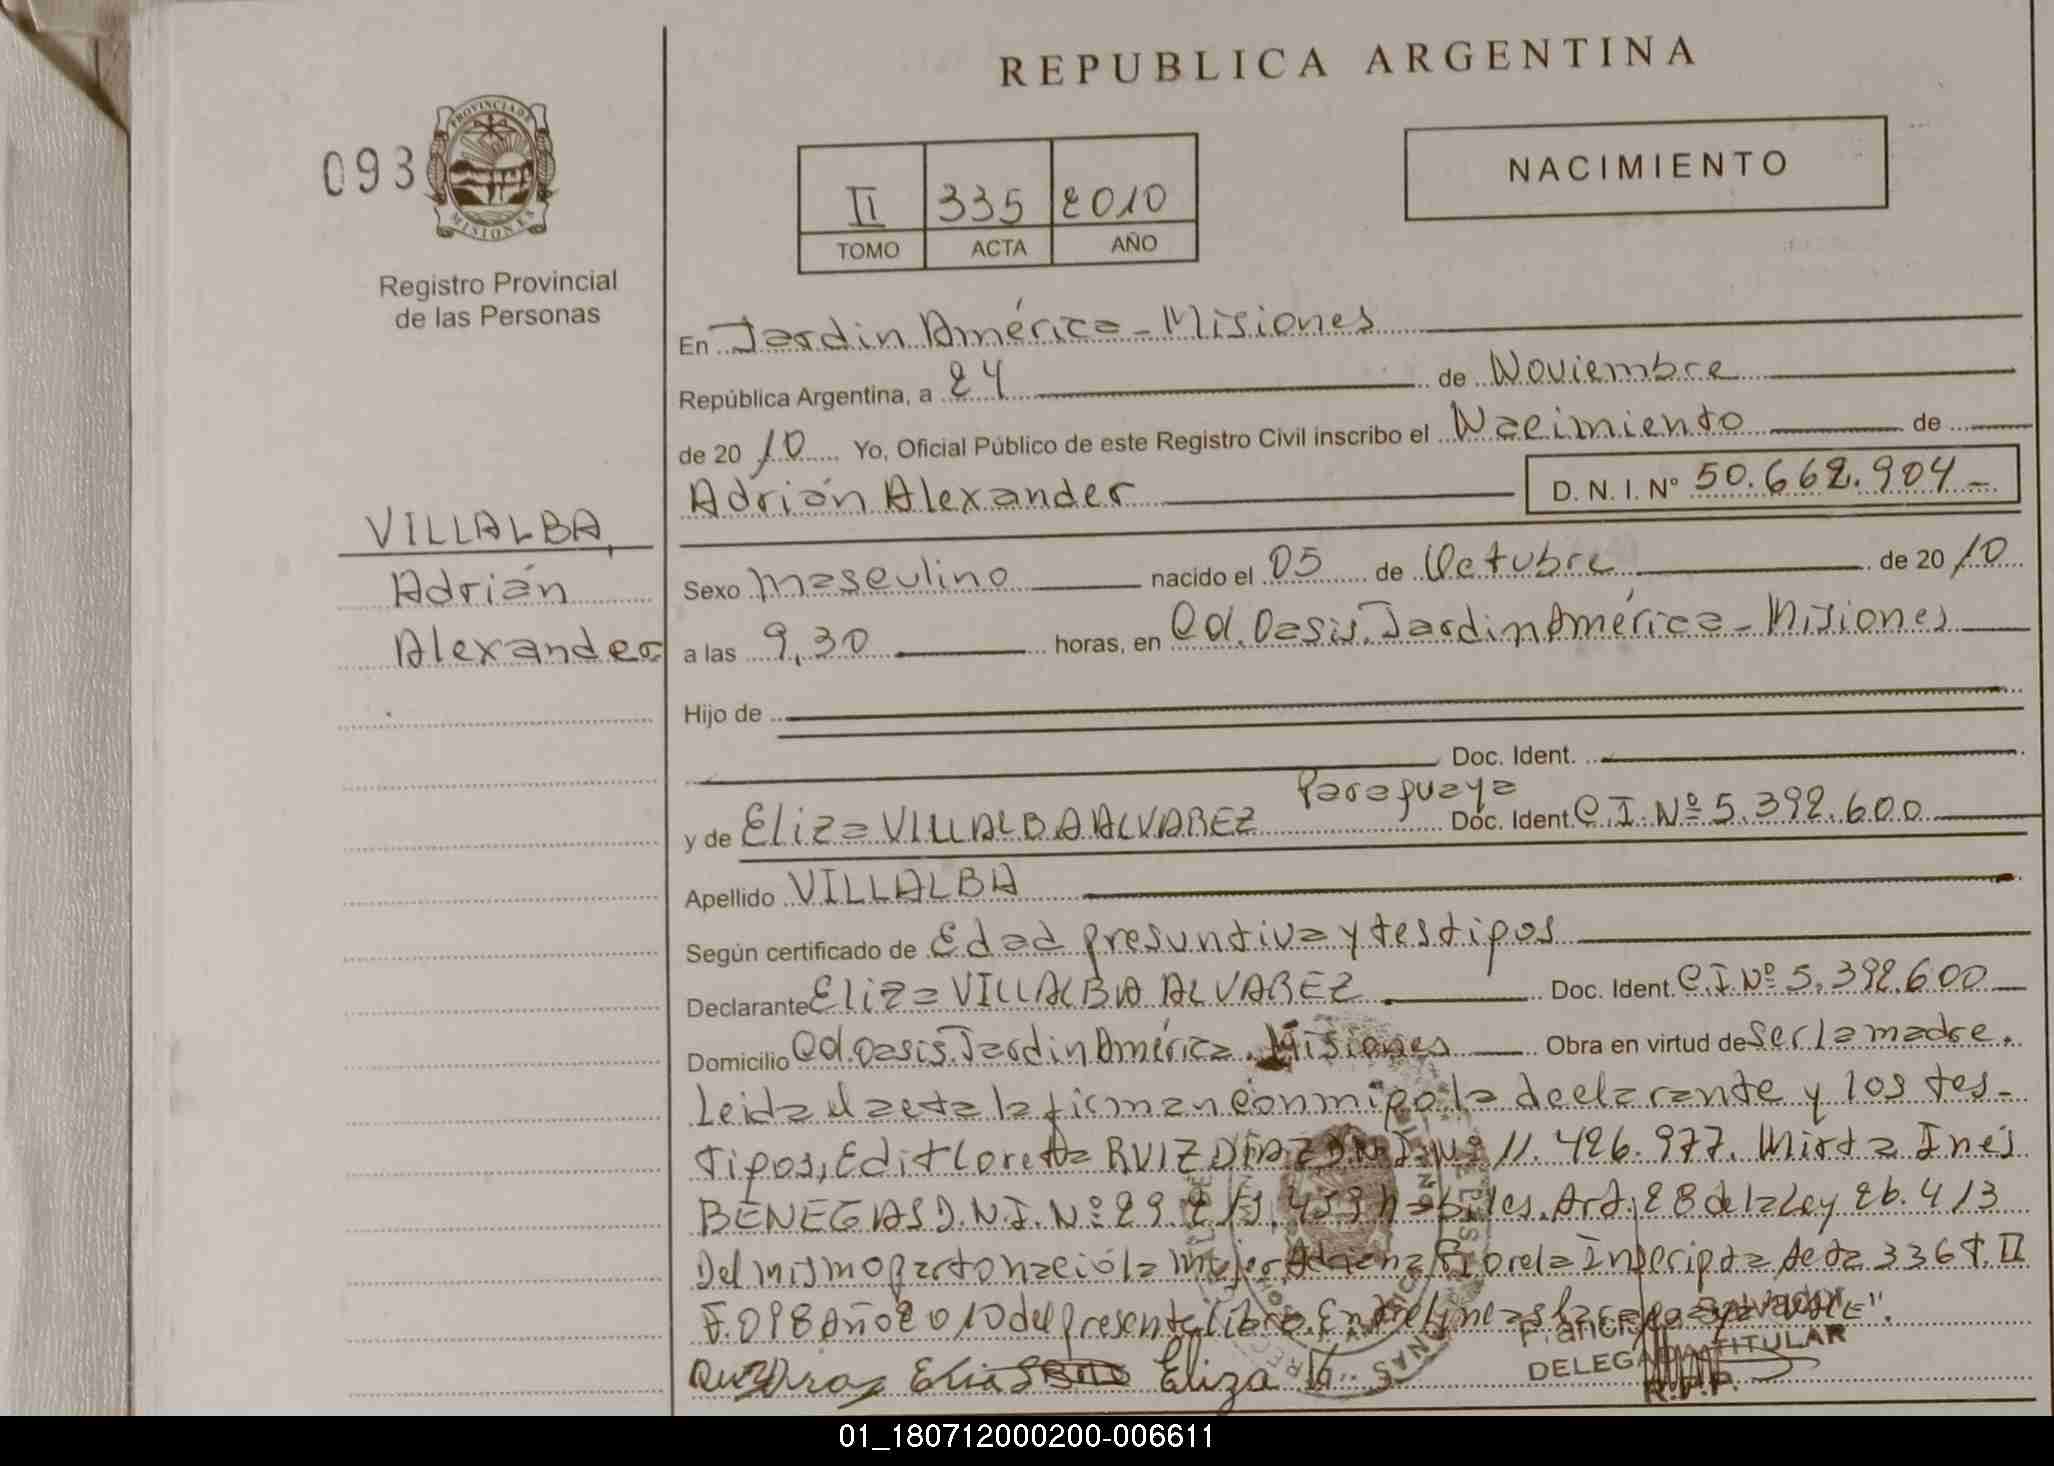 REPUBLICA ARGENTINA
093
PROVINCIA DE MISIONES
Registro Provincial
de las Personas
II 335 2010
TOMO ACTA AÑO
NACIMIENTO
VILLALBA,
Adrián
Alexander
En Jardin América - Misiones
República Argentina, a 24 de Noviembre
de 2010 Yo, Oficial Público de este Registro Civil inscribo el Nacimiento de
Adrián Alexander D. N. I. N° 50.662.904 -
Sexo Masculino nacido el 05 de Octubre de 2010
a las 9,30 horas, en Cd. Oasis. Jardin América - Misiones
Hijo de
Doc. Ident.
Paraguaya
y de Eliza VILLALBA ALVAREZ Doc. Ident. C.I. Nº 5.392.600
Apellido VILLALBA
Según certificado de Edad presuntiva y testigos
Declarante Eliza VILLALBA ALVAREZ Doc. Ident. C.I. Nº 5.392.600
Domicilio Cd. Oasis. Jardin América. Misiones Obra en virtud de Ser la madre.
Leida el acta la firman conmigo la declarante y los tes-
tigos, Edit Loretta RUIZ DIAZ D.N.I. Nº 11.426.977. Mirta Inés
BENEGAS D.N.I. Nº 29. 459 habiles. Art. 28 de la Ley 26.413
Del mismo parto nació la mujer Adriana Fiorela Inscripta Acta 336 T. II
F. 098 año 2010 del presente libro. Entrelineas Paraguaya "VALE".
Eliza V. Salvador
DELEGADA TITULAR
R.P.P.
01_180712000200-006611